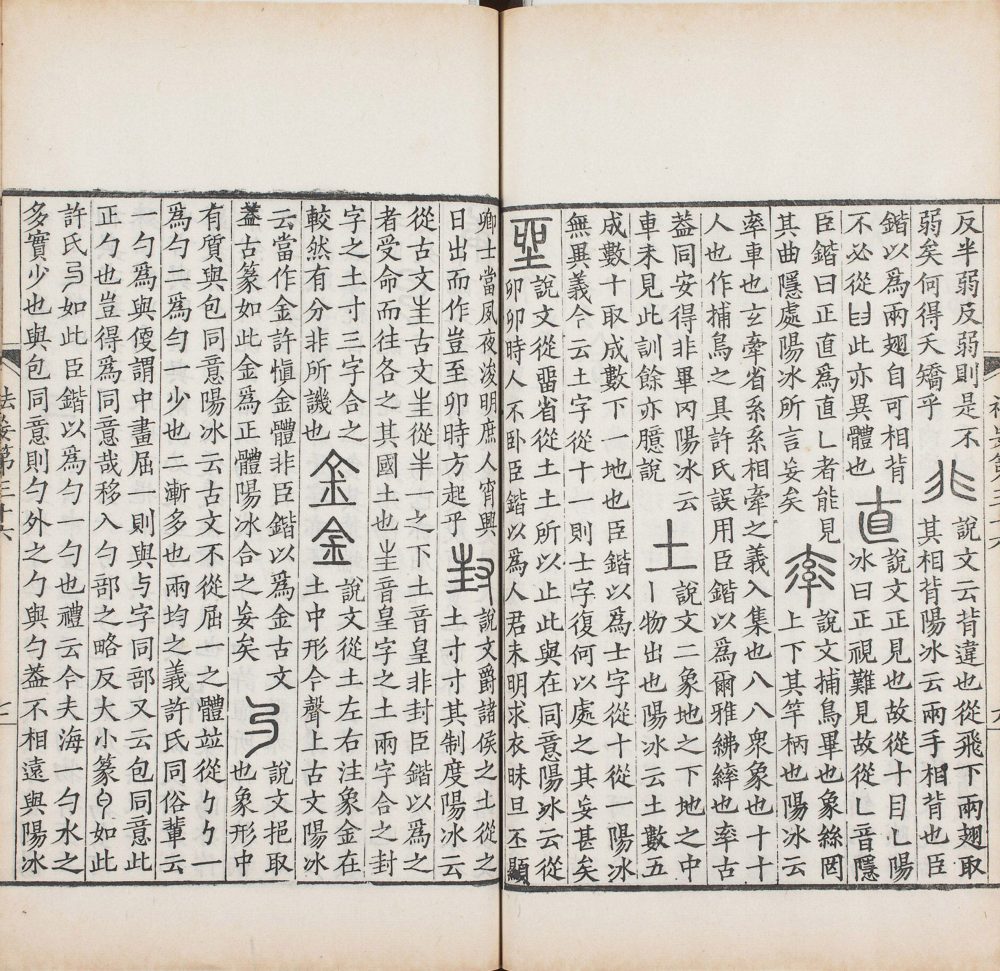 反半弱反弱則是不
弱矣何得夭矯乎
非
說文云背違也從飛下兩翅取
其相背陽冰云兩手相背也臣
鍇以爲兩翅自可相背
不必從臼此亦異體也
直
說文正見也故從十目乚陽
冰曰正視難見故從乚音隱
臣鍇曰正直爲直乚者能見
其曲隱處陽冰所言妄矣
率
說文捕鳥畢也象絲罔
上下其竿柄也陽冰云
率車也玄牽省系系相牽之義入集也八八衆象也十十
人也作捕鳥之具許氏誤用臣鍇以爲爾雅紼繂也率古
葢同安得非畢罔陽冰云
車未見此訓餘亦臆說
土
說文二象地之下地之中
丨物出也陽冰云土數五
成數十取成數下一地也臣鍇以爲士字從十從一陽冰
無異義今云土字從十一則士字復何以處之其妄甚矣
說文從畱省從土土所以止此與在同意陽冰云從
卯卯時人不卧臣鍇以爲人君未明求衣昧旦丕顯
卿士當夙夜浚明庶人宵興
日出而作豈至卯時方起乎
封
說文爵諸侯之土從之
土寸寸其制度陽冰云
從古文𡉚古文𡉚從半一之下土音皇非封臣鍇以爲之
者受命而往各之其國土也𡉚音皇字之土兩字合之封
字之土寸三字合之
較然有分非所譏也
金金
說文從土左右注象金在
土中形今聲上古文陽冰
云當作金許慎金體非臣鍇以爲金古文
葢古篆如此金爲正體陽冰合之妄矣
說文挹取
也象形中
有質與包同意陽冰云古文不從屈一之體竝從勹勹一
爲勺二爲勻一少也二漸多也兩均之義許氏同俗輩云
一勺爲與便謂中畫屈一則與与字同部又云包同意此
正勺也豈得爲同意哉移入勺部之略反大小篆如此
許氏如此臣鍇以爲勺一勺也禮云今夫海一勺水之
多實少也與包同意則勺外之勹與勺葢不相遠與陽冰